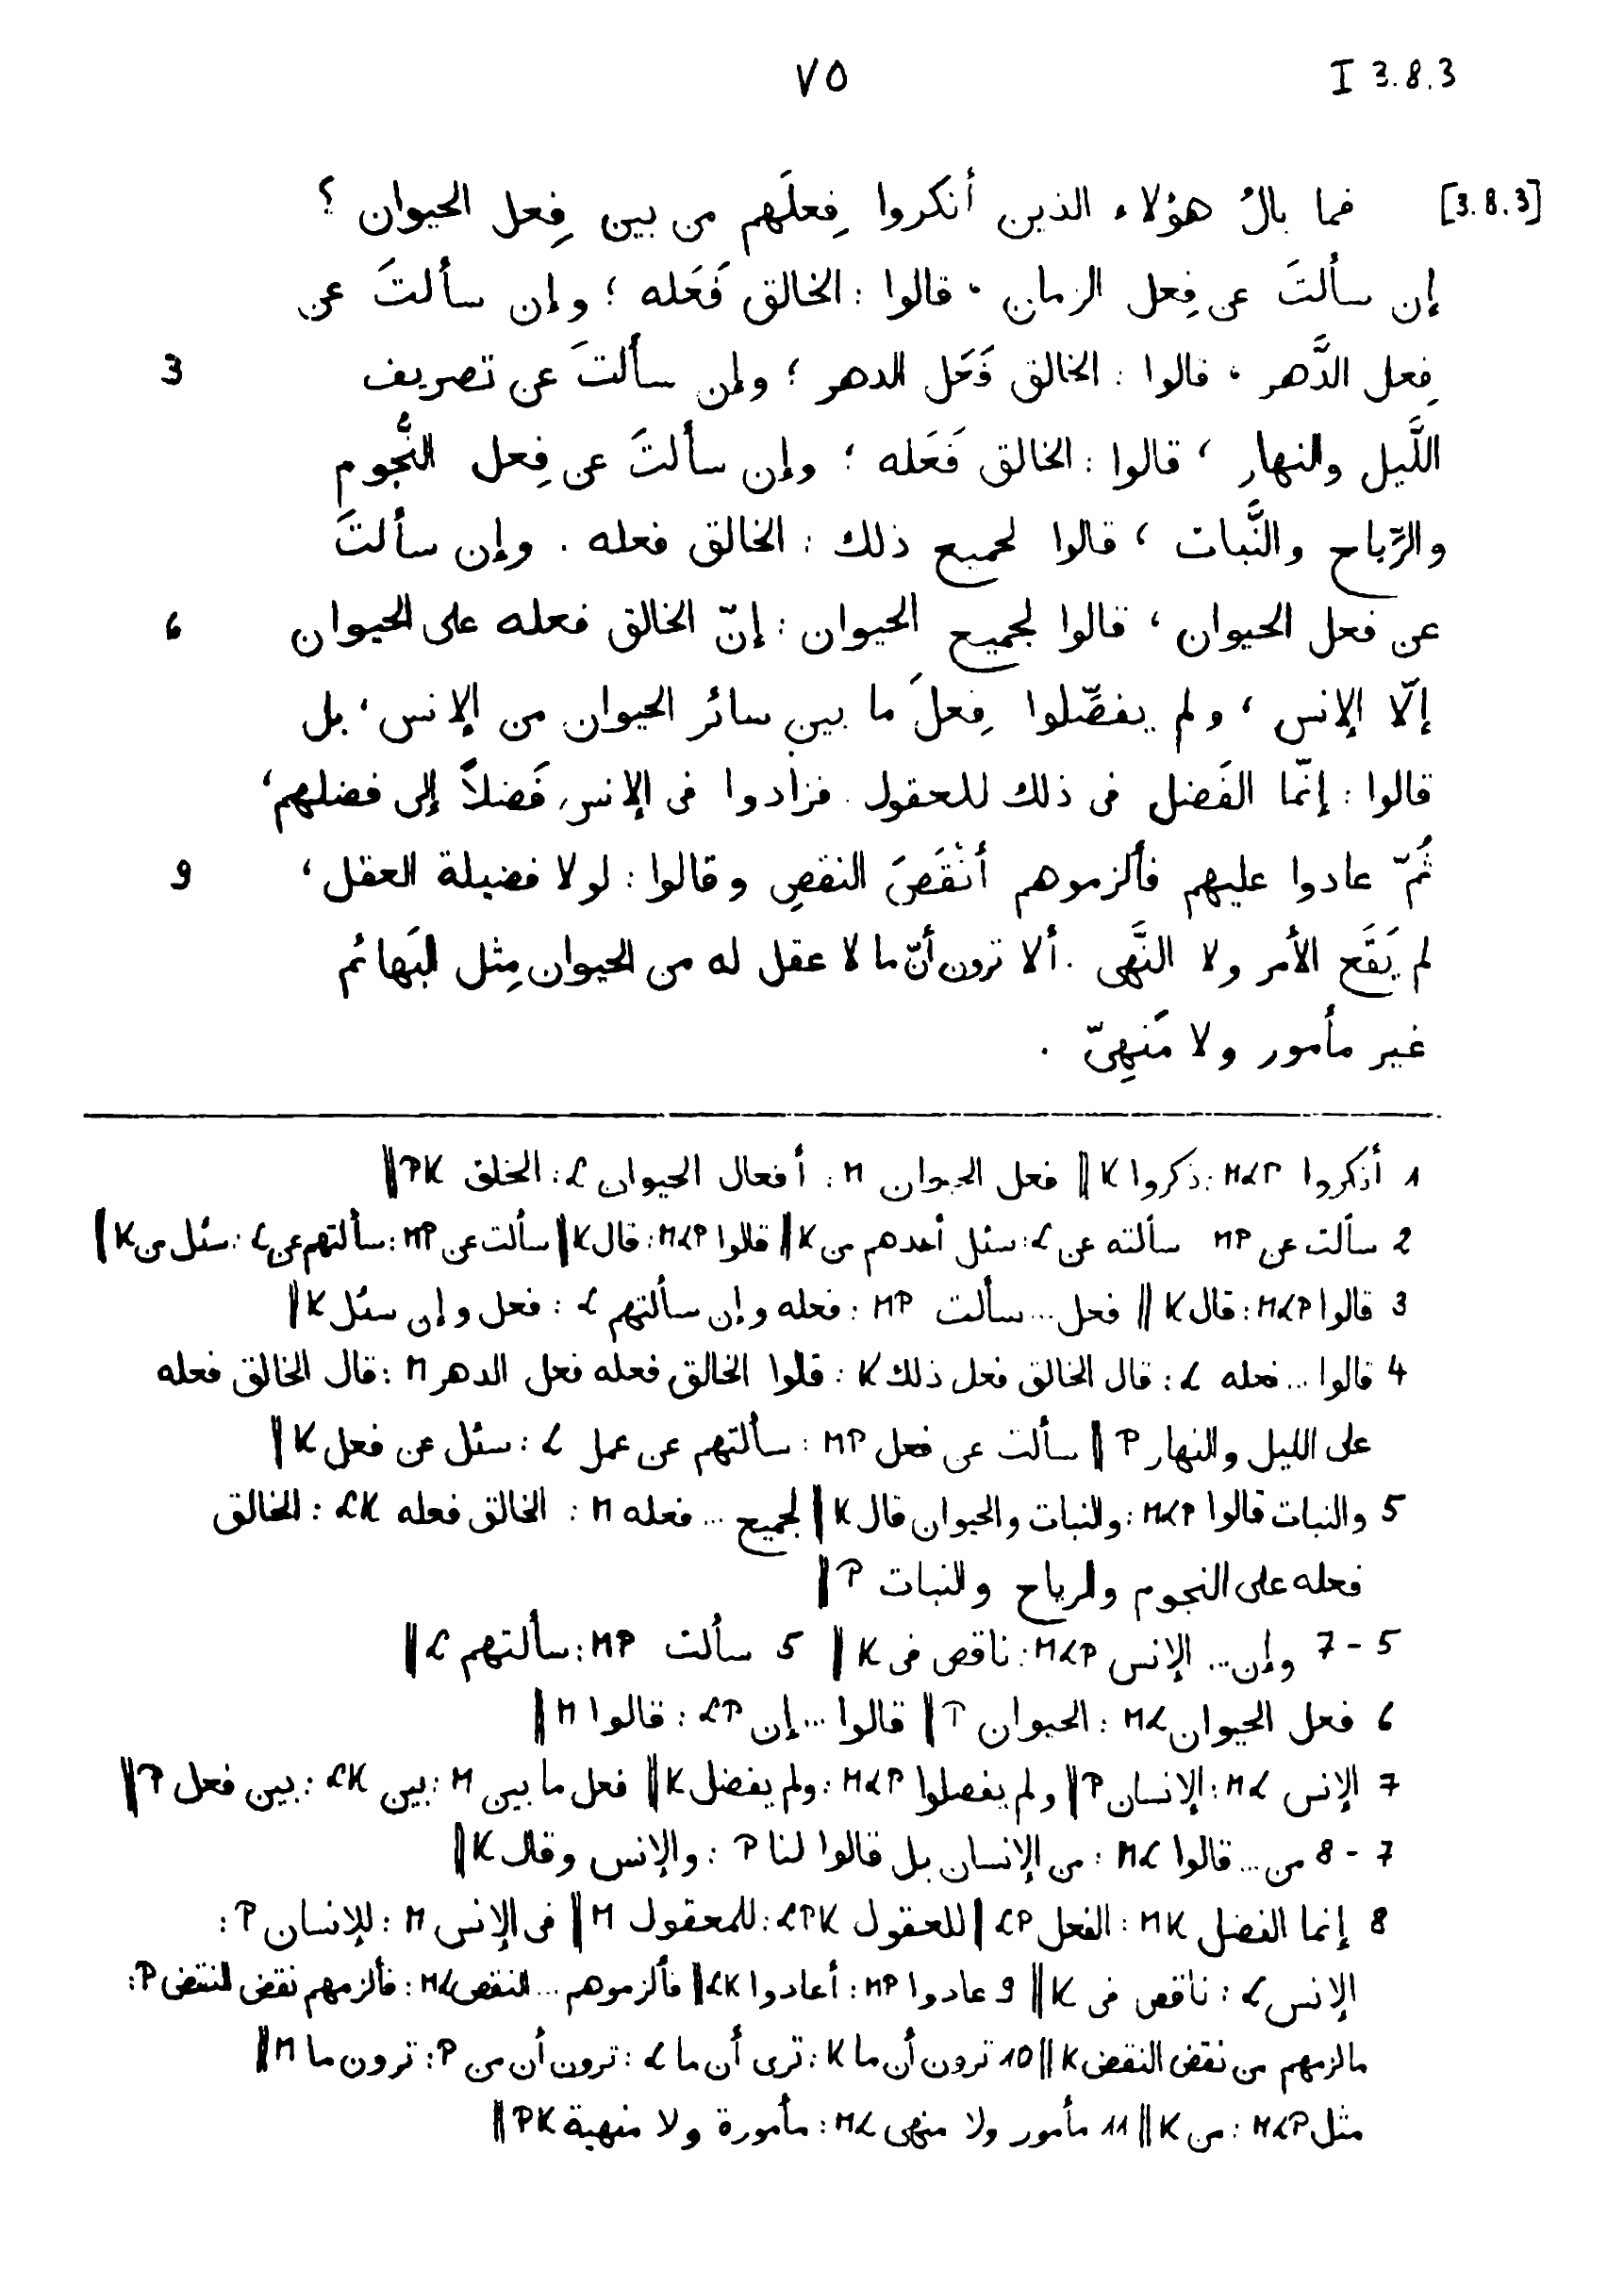 I 3.8.3
٧٥
[3.8.3] فما بالُ هؤلاء الذين أنكروا فِعلَهم من بين فِعل الحيوان ؟
إن سألتَ عن فِعل الزمان ، قالوا : الخالق فَعَله ؛ وإن سألتَ عن
فِعل الدَّهر ، قالوا : الخالق فَعَل الدهر ؛ وإن سألتَ عن تصريف 3
اللَّيل والنهار ، قالوا : الخالق فَعَله ؛ وإن سألتَ عن فِعل النُّجوم
والرِّياح والنَّبات ، قالوا لجميع ذلك : الخالق فعله . وإن سألتَ
عن فعل الحيوان ، قالوا لجميع الحيوان : إنّ الخالق فعله على الحيوان 6
إلّا الإنس ، ولم يفصِّلوا فِعلَ ما بين سائر الحيوان من الإنس ، بل
قالوا : إنّما الفَضل فى ذلك للعقول . فزادوا فى الإنس فَضلاً إلى فضلهم ،
ثُمّ عادوا عليهم فألزموهم أنْقَصَ النقصِ وقالوا : لولا فضيلة العقل ، 9
لم يَقَع الأمر ولا النَّهى . ألا ترون أنّ ما لا عقل له من الحيوان مِثل البَهائم
غير مأمور ولا مَنهِىّ .
1 أنكروا MLP : ذكروا K ‖ فعل الحيوان M : أفعال الحيوان L : الخلق PK ‖
2 سألت عن MP سألته عن L : سئل أحدهم من K ‖ قالوا MLP : قال K ‖ سألت عن MP : سألتهم عن L : سئل من K ‖
3 قالوا MLP : قال K ‖ فعل ... سألت MP : فعله وإن سألتهم L : فعل وإن سئل K ‖
4 قالوا ... فعله L : قال الخالق فعل ذلك K : قلوا الخالق فعله فعل الدهر M : قال الخالق فعله
على الليل والنهار P ‖ سألت عن فعل MP : سألتهم عن عمل L : سئل عن فعل K ‖
5 والنبات قالوا MLP : والنبات والحيوان قال K ‖ لجميع ... فعله M : الخالق فعله LK : الخالق
فعله على النجوم والرياح والنبات P ‖
5 - 7 وإن ... الإنس MLP : ناقص فى K ‖ 5 سألت MP : سألتهم L ‖
6 فعل الحيوان ML : الحيوان P ‖ قالوا ... إن LP : قالوا M ‖
7 الإنس ML : الإنسان P ‖ ولم يفصلوا MLP : ولم يفضل K ‖ فعل ما بين M : بين LK : بين فعل P ‖
7 - 8 من ... قالوا ML : من الإنسان بل قالوا لنا P : والإنس وقال K ‖
8 إنما الفضل MK : الفعل LP ‖ للعقول LPK : للمعقول M ‖ فى الإنس M : للإنسان P :
الإنس L : ناقص فى K ‖ 9 عادوا MP : أعادوا LK ‖ فألزموهم ... النقص ML : فألزمهم نقض النقض P :
مالزمهم من نقض النقض K ‖ 10 ترون أن ما K : ترى أن ما L : ترون أن من P : ترون ما M ‖
مثل MLP : من K ‖ 11 مأمور ولا منهى ML : مأمورة ولا منهية PK ‖